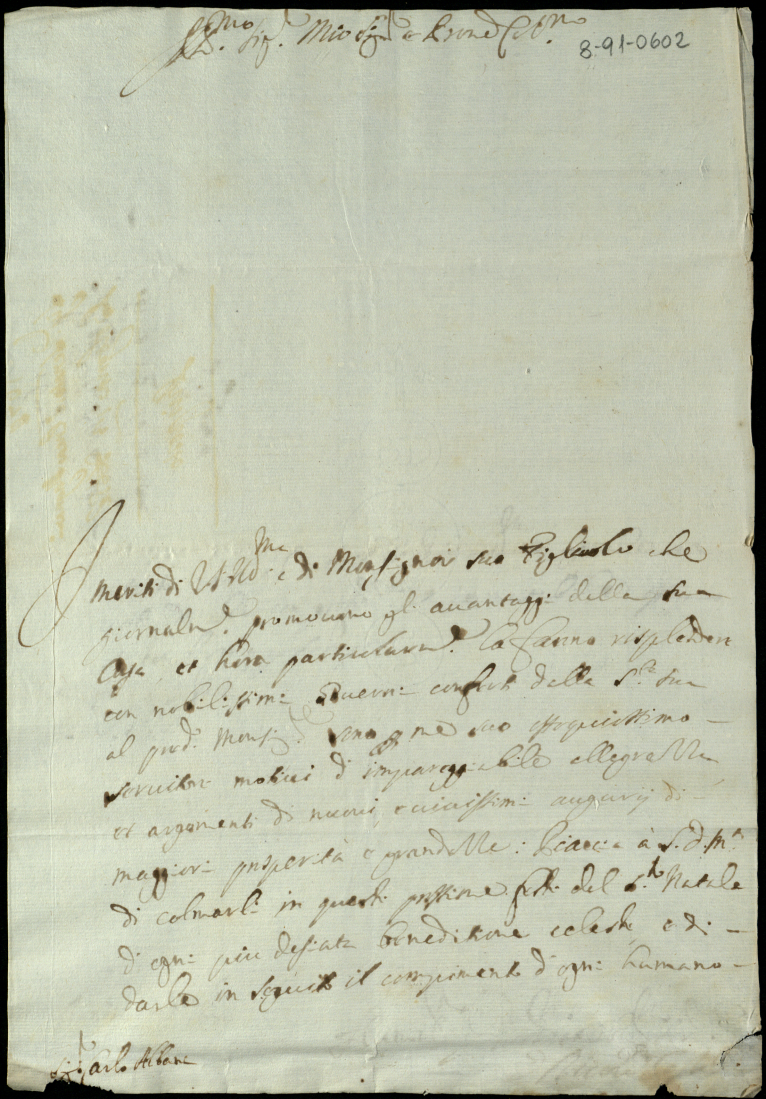 Ill.mo Sig.r Mio Sig.r e Pron Col.mo
8-91-0602
I meriti di V.S. Ill.ma e di Monsignor suo Figliuolo che
giornalm.e promouono gl'auantaggi della sua
Casa, et hora particolarm.e la fanno risplendere
con nobilissimi Gouerni conferiti dalla S.tà Sua
al pred.o Monsig.re sono a me suo ossequiosissimo
seruitore motiui d'impareggiabile allegrezza
et argomenti di nuoui e uiuissimi augurij di
maggiori prosperità e grandezze: Piaccia à S.D.M.tà
di colmarla in queste prossime feste del S.to Natale
d'ogni più desiata benedittione celeste, e di
darle in seguito il compimento d'ogni humano
Sig.r Carlo Albani